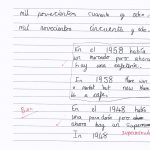 mil novecientos cuarenta y ocho
mil novecientos cincuenta y ocho
En el 1958 había
un mercado pero ahora
hay una cafetería.
In 1958 there was
a market but now there
is a cafe.
En el 1948 había
una panadería pero ahora
ahora hay un supermercado
In 1948 supermercado